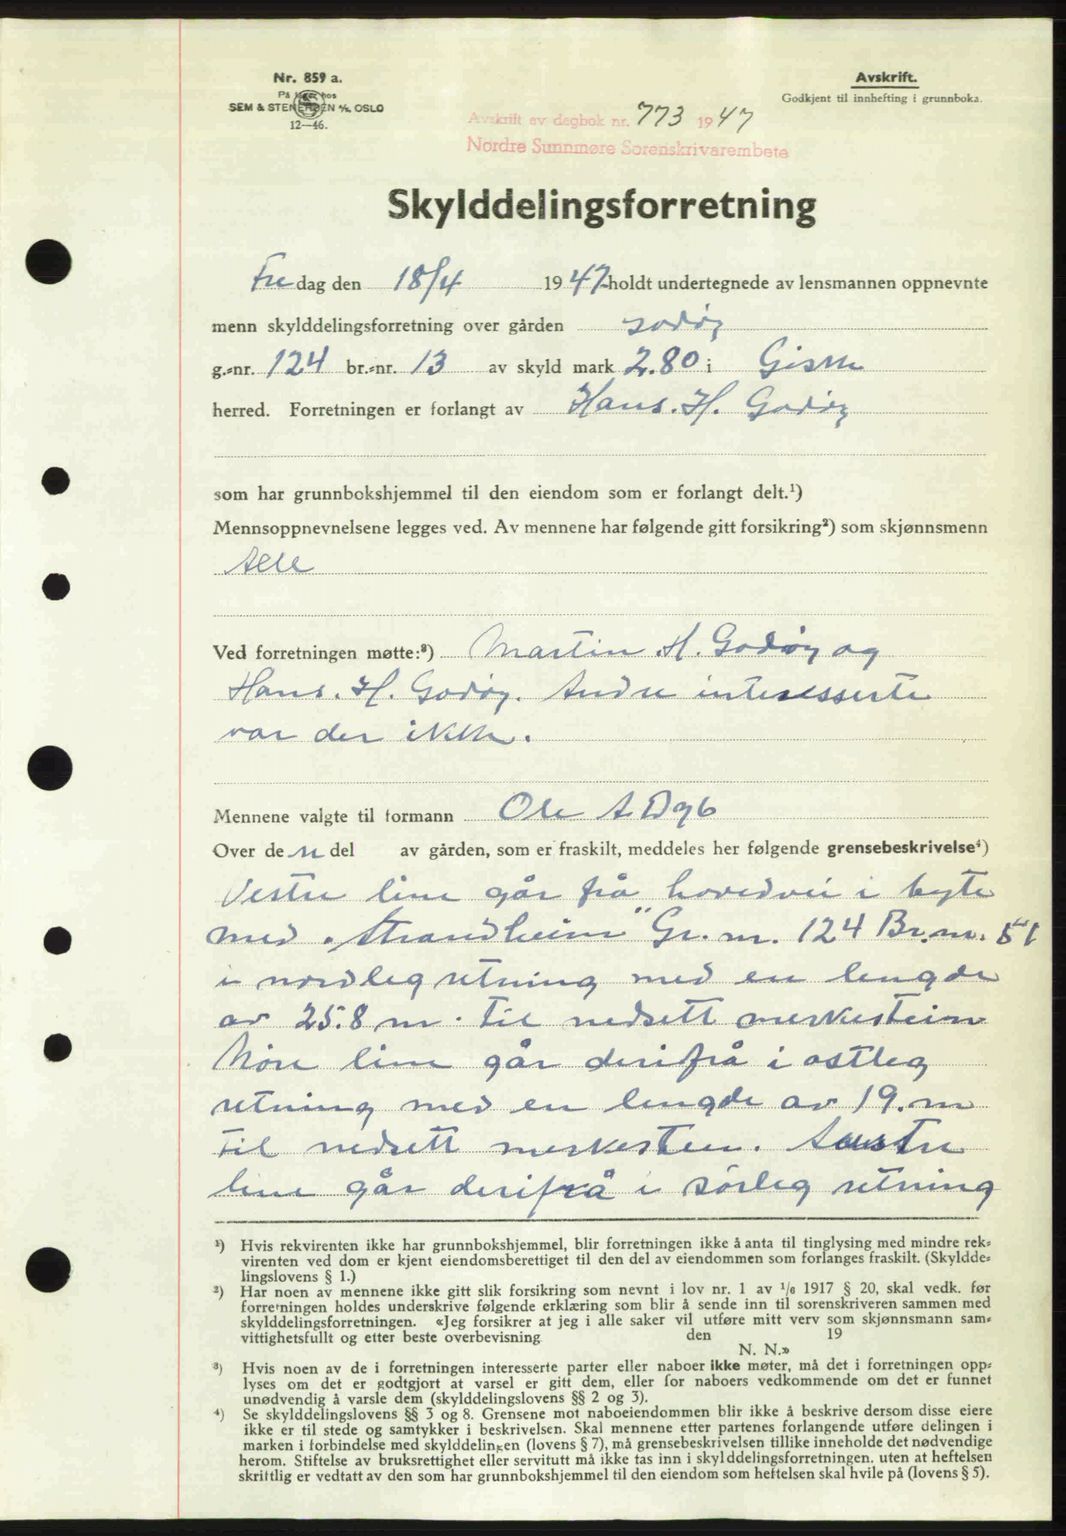 Nr. 859 a.
På lager hos
SEM & STENERSEN A/S, OSLO
12—46.
Avskrift.
Godkjent til innhefting i grunnboka.
Avskrift av dagbok nr. 773 1947
Nordre Sunnmøre Sorenskrivarembete
Skylddelingsforretning
Fredag den 18/4 1947 holdt undertegnede av lensmannen oppnevnte
menn skylddelingsforretning over gården Godøy
g.-nr. 124 br.-nr. 13 av skyld mark 2.80 i Giske
herred. Forretningen er forlangt av Hans. H. Godøy
som har grunnbokshjemmel til den eiendom som er forlangt delt.¹)
Mennsoppnevnelsene legges ved. Av mennene har følgende gitt forsikring²) som skjønnsmenn
Alle
Ved forretningen møtte:³) Martin H. Godøy og
Hans. H. Godøy. Andre interesserte
var der ikke.
Mennene valgte til formann Ole A Dyb
Over den del av gården, som er fraskilt, meddeles her følgende grensebeskrivelse⁴)
Vestre line går frå hovedvei i byte
med "Strandheim" Gr. nr. 124 Br. nr. 51
i nordleg retning med en lengde
av 25.8 m. til nedsett merkestein
Nöre line går derifrå i ostleg
retning med en lengde av 19. m
til nedsett merkesten. Austre
line går derifrå i sörleg retning
¹) Hvis rekvirenten ikke har grunnbokshjemmel, blir forretningen ikke å anta til tinglysing med mindre rek-
virenten ved dom er kjent eiendomsberettiget til den del av eiendommen som forlanges fraskilt. (Skyldde-
lingslovens § 1.)
²) Har noen av mennene ikke gitt slik forsikring som nevnt i lov nr. 1 av 1/6 1917 § 20, skal vedk. før
forretningen holdes underskrive følgende erklæring som blir å sende inn til sorenskriveren sammen med
skylddelingsforretningen. «Jeg forsikrer at jeg i alle saker vil utføre mitt verv som skjønnsmann sam-
vittighetsfullt og etter beste overbevisning den 19
N. N.»
³) Hvis noen av de i forretningen interesserte parter eller naboer ikke møter, må det i forretningen opp-
lyses om det er godtgjort at varsel er gitt dem, eller for naboers vedkommende om det er funnet
unødvendig å varsle dem (skylddelingslovens §§ 2 og 3).
⁴) Se skylddelingslovens §§ 3 og 8. Grensene mot naboeiendommen blir ikke å beskrive dersom disse eiere
ikke er til stede og samtykker i beskrivelsen. Skal mennene etter partenes forlangende utføre delingen i
marken i forbindelse med skylddelingen (lovens § 7), må grensebeskrivelsen tillike inneholde det nødvendige
herom. Stiftelse av bruksrettighet eller servitutt må ikke tas inn i skylddelingsforretningen, uten at heftelsen
skriftlig er vedtatt av den som har grunnbokshjemmel til den eiendom som heftelsen skal hvile på (lovens § 5).